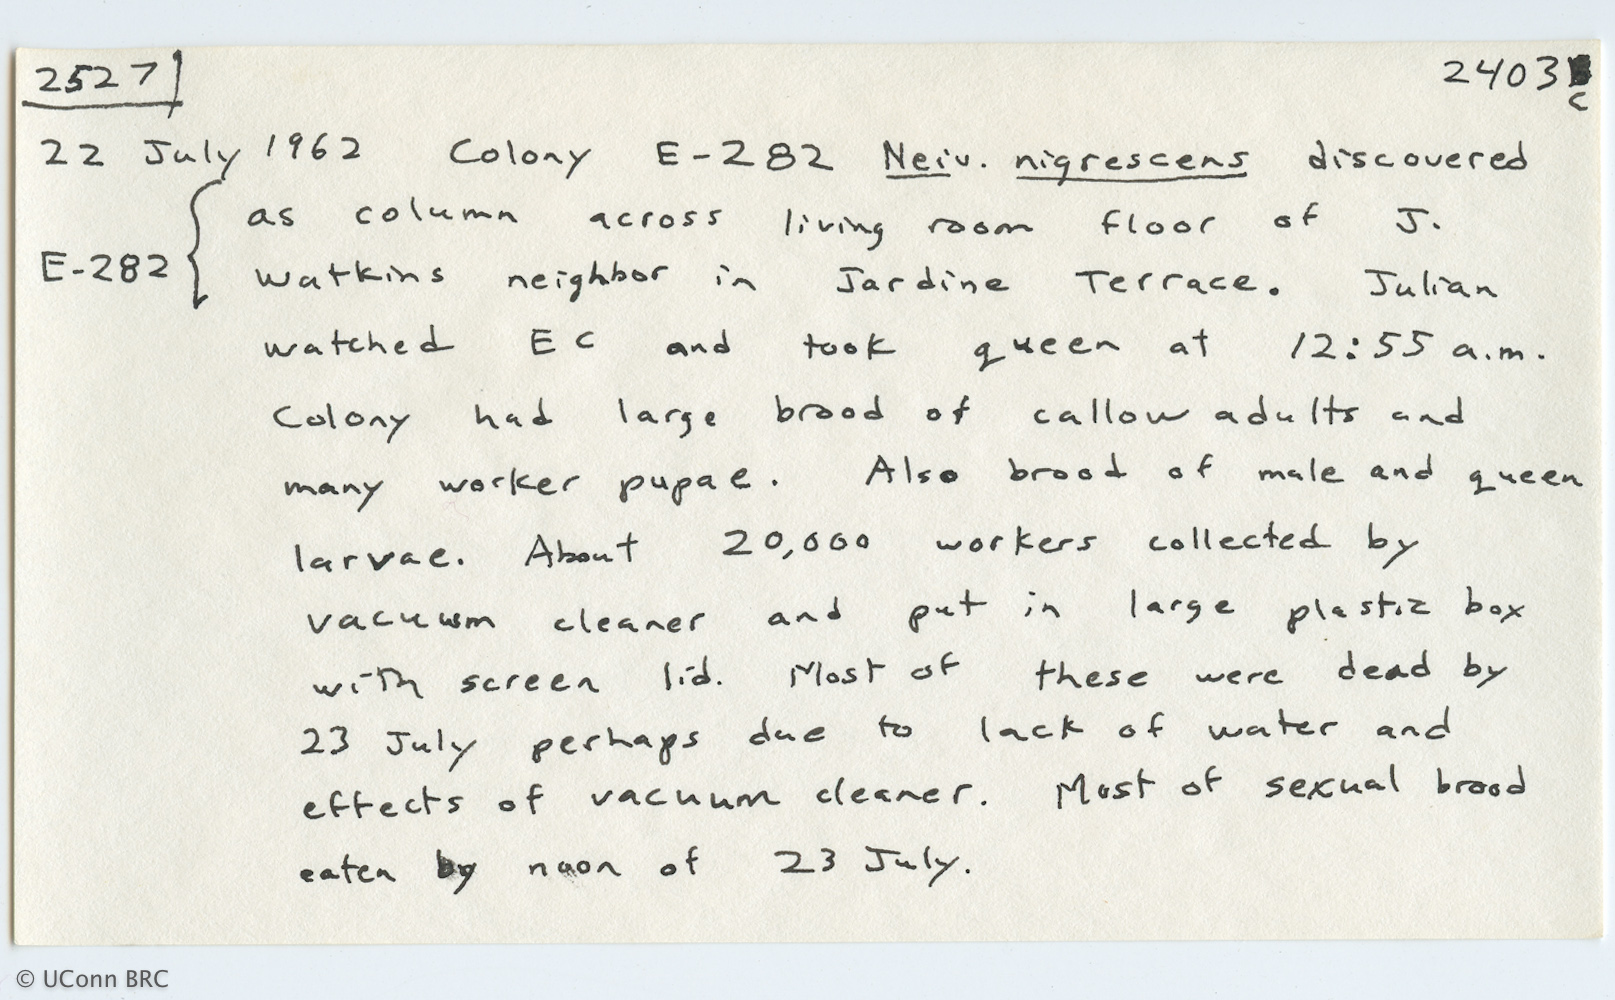 2527
2403
C
22 July 1962 Colony E-282 Neiv. nigrescens discovered
as column across living room floor of J.
E-282
Watkins neighbor in Jardine Terrace. Julian
watched EC and took queen at 12:55 a.m.
Colony had large brood of callow adults and
many worker pupae. Also brood of male and queen
larvae. About 20,000 workers collected by
vacuum cleaner and put in large plastic box
with screen lid. Most of these were dead by
23 July perhaps due to lack of water and
effects of vacuum cleaner. Most of sexual brood
eaten by noon of 23 July.
© UConn BRC